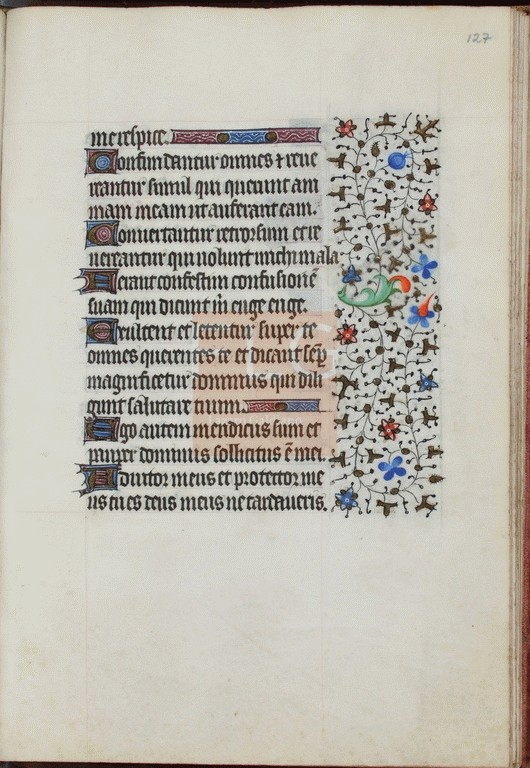 127
me respice.
Confundantur omnes ⁊ reue
reantur simul qui querunt ani
mam meam ut auferant eam.
Conuertantur retrorsum et re
uereantur qui uolunt michi mala
Ferant confestim confusionē
suam qui dicunt m̄ euge euge.
Exultent et letentur super te
omnes querentes te et dicant semp̄
magnificetur dominus qui dili
gunt salutare tuum.
Ego autem mendicus sum et
pauper dominus sollicitus ē mei.
Adiutor meus et protector me
us tu es deus meus ne tardaueris.